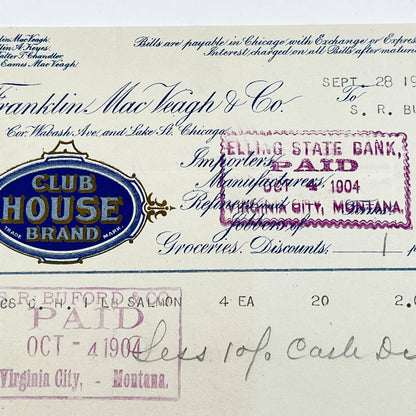 Franklin MacVeagh.
Bills are payable in Chicago with Exchange or Express
Walter T. Chandler.
Interest charged on all Bills after matur
Eames MacVeagh.
SEPT. 28 19
Franklin MacVeagh & Co. To
S. R. BU
Cor. Wabash Ave. and Lake St. Chicago
ELLING STATE BANK,
PAID
OCT 4 1904
VIRGINIA CITY, MONTANA.
Importers,
Manufacturers,
Refiners
Jobbers of
Groceries. Discounts. 1 p
CLUB
HOUSE
BRAND
TRADE MARK.
CS C. H. 1 LB SALMON 4 EA 20 2.0
S. R. BUFORD & CO.
PAID
OCT - 4 1904
Virginia City, - Montana.
Less 1% Cash Di